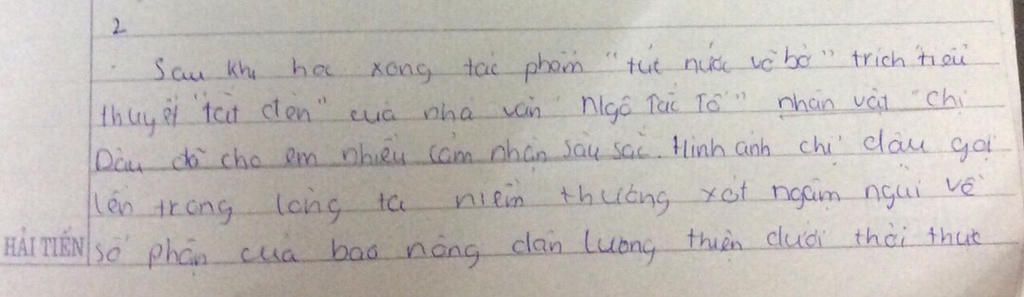 2
Sau khi học xong tác phẩm "tức nước vỡ bờ" trích tiểu
thuyết "tắt đèn" của nhà văn "Ngô Tất Tố" nhân vật "chị
Dậu đã cho em nhiều cảm nhận sâu sắc. Hình ảnh chị dậu gợi
lên trong lòng ta niềm thương xót ngậm ngùi về
HẢI TIẾN số phận của bao nông dân lương thiện dưới thời thực